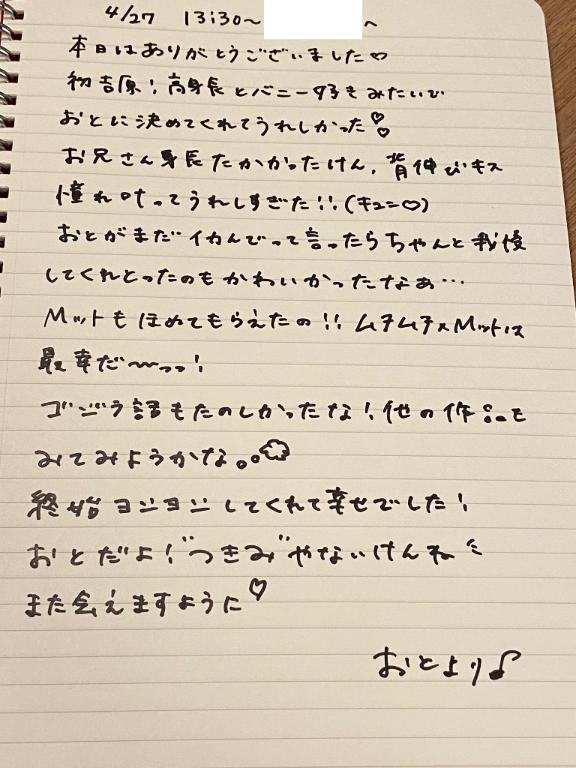 4/27 13:30〜 へ
本日はありがとうございました♡
初吉原!高身長とバニー好きみたいで
おとに決めてくれてうれしかった♡♡
お兄さん身長たかかったけん、背伸びキス
憧れ叶ってうれしすぎた!!(キュン♡)
おとがまだイカんでって言ったらちゃんと我慢
してくれとったのもかわいかったなぁ…
Mットもほめてもらえたの!!ムチムチ×Mットは
最幸だ〜っっ!
ゴジラ話もたのしかったな!他の作品も
みてみようかな。
終始ヨシヨシしてくれて幸せでした!
おとだよ!"つきみ"やないけんね
また会えますように♡
おとより♪